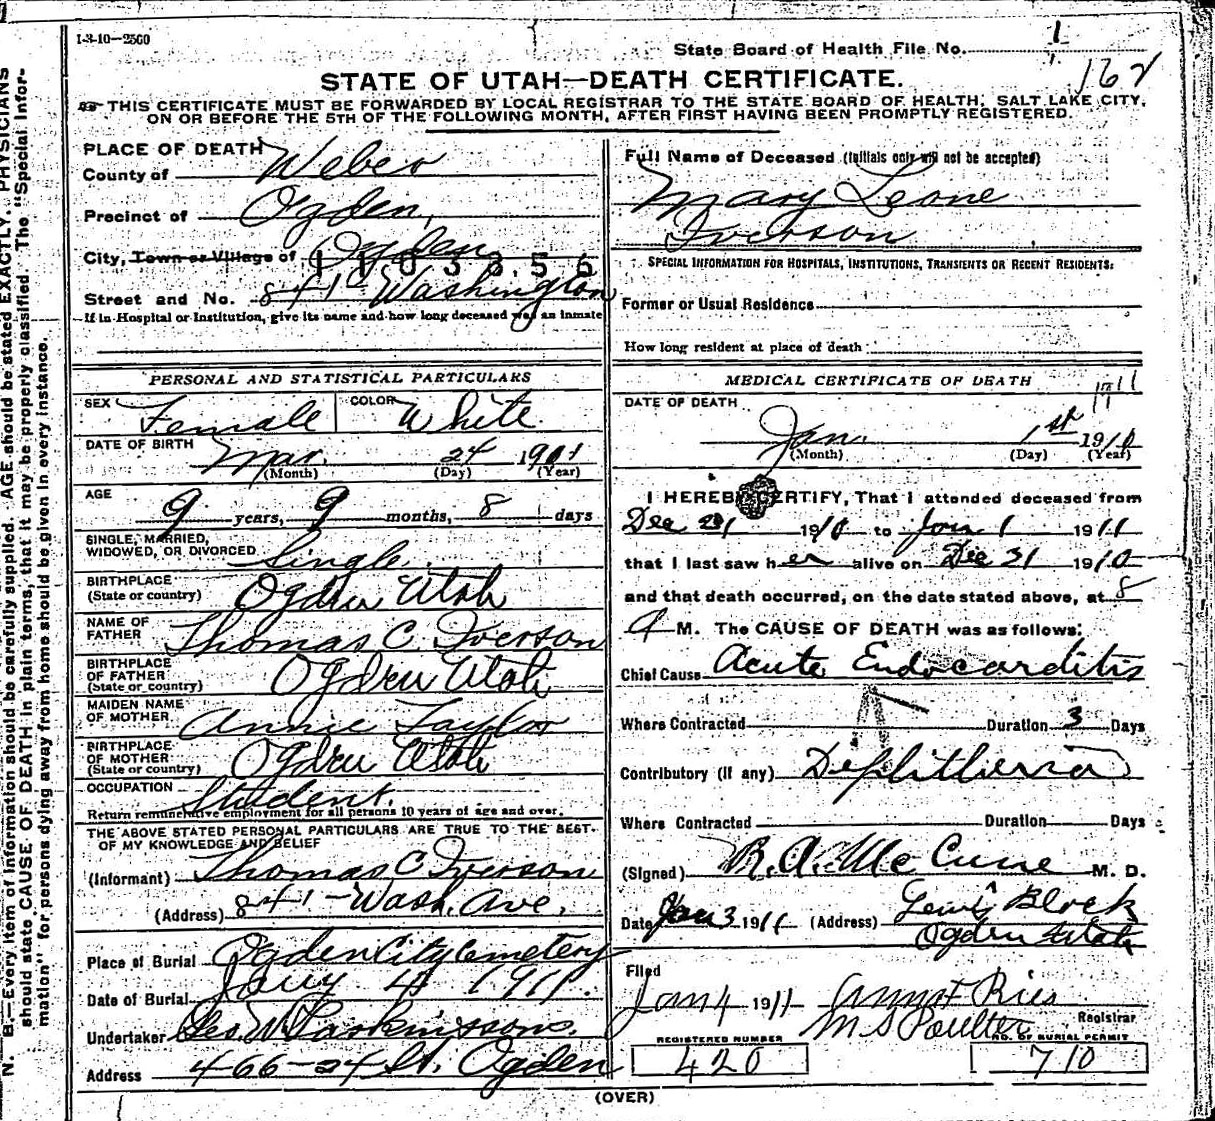 1-3-10—2500
State Board of Health File No. 1
162
STATE OF UTAH—DEATH CERTIFICATE.
THIS CERTIFICATE MUST BE FORWARDED BY LOCAL REGISTRAR TO THE STATE BOARD OF HEALTH, SALT LAKE CITY,
ON OR BEFORE THE 5TH OF THE FOLLOWING MONTH, AFTER FIRST HAVING BEEN PROMPTLY REGISTERED.
PLACE OF DEATH
County of Weber
Precinct of Ogden,
City, Town or Village of Ogden
1103356
Street and No. 841 - Washington
If in Hospital or Institution, give its name and how long deceased was an inmate
Full Name of Deceased (Initials only will not be accepted)
Mary Leone
Iverson
SPECIAL INFORMATION FOR HOSPITALS, INSTITUTIONS, TRANSIENTS OR RECENT RESIDENTS:
Former or Usual Residence
How long resident at place of death
PERSONAL AND STATISTICAL PARTICULARS
SEX Female COLOR White
DATE OF BIRTH Mar. 24 1901
(Month) (Day) (Year)
AGE 9 years, 9 months, 8 days
SINGLE, MARRIED,
WIDOWED, OR DIVORCED Single
BIRTHPLACE
(State or country) Ogden Utah
NAME OF
FATHER Thomas C. Iverson
BIRTHPLACE
OF FATHER
(State or country) Ogden Utah
MAIDEN NAME
OF MOTHER Annie Taylor
BIRTHPLACE
OF MOTHER
(State or country) Ogden Utah
OCCUPATION Student.
Return remunerative employment for all persons 10 years of age and over.
THE ABOVE STATED PERSONAL PARTICULARS ARE TRUE TO THE BEST
OF MY KNOWLEDGE AND BELIEF
(Informant) Thomas C Iverson
(Address) 841 - Wash. Ave.
Place of Burial Ogden City Cemetery
Date of Burial Jany 4 1911.
Undertaker Geo. W. Larkin & Sons.
Address 466-24 St. Ogden
MEDICAL CERTIFICATE OF DEATH
DATE OF DEATH
11
Jan. 1st 1910
(Month) (Day) (Year)
I HEREBY CERTIFY, That I attended deceased from
Dec 1910 to Jan 1 1911
that I last saw her alive on Dec 31 1910
and that death occurred, on the date stated above, at 8
A M. The CAUSE OF DEATH was as follows:
Chief Cause Acute Endocarditis
Where Contracted Duration 3 Days
Contributory (if any) Diphtheria
Where Contracted Duration Days
(Signed) R. A. McCune M. D.
Date Jan 3 1911 (Address) Lewis Block
Ogden Utah
Filed
Jan 4 1911 Anna F Ries
M S Poulter Registrar
REGISTERED NUMBER NO. OF BURIAL PERMIT
420 710
(OVER)
N. B.—Every item of information should be carefully supplied. AGE should be stated EXACTLY. PHYSICIANS
should state CAUSE OF DEATH in plain terms, that it may be properly classified. The "Special Infor-
mation" for persons dying away from home should be given in every instance.